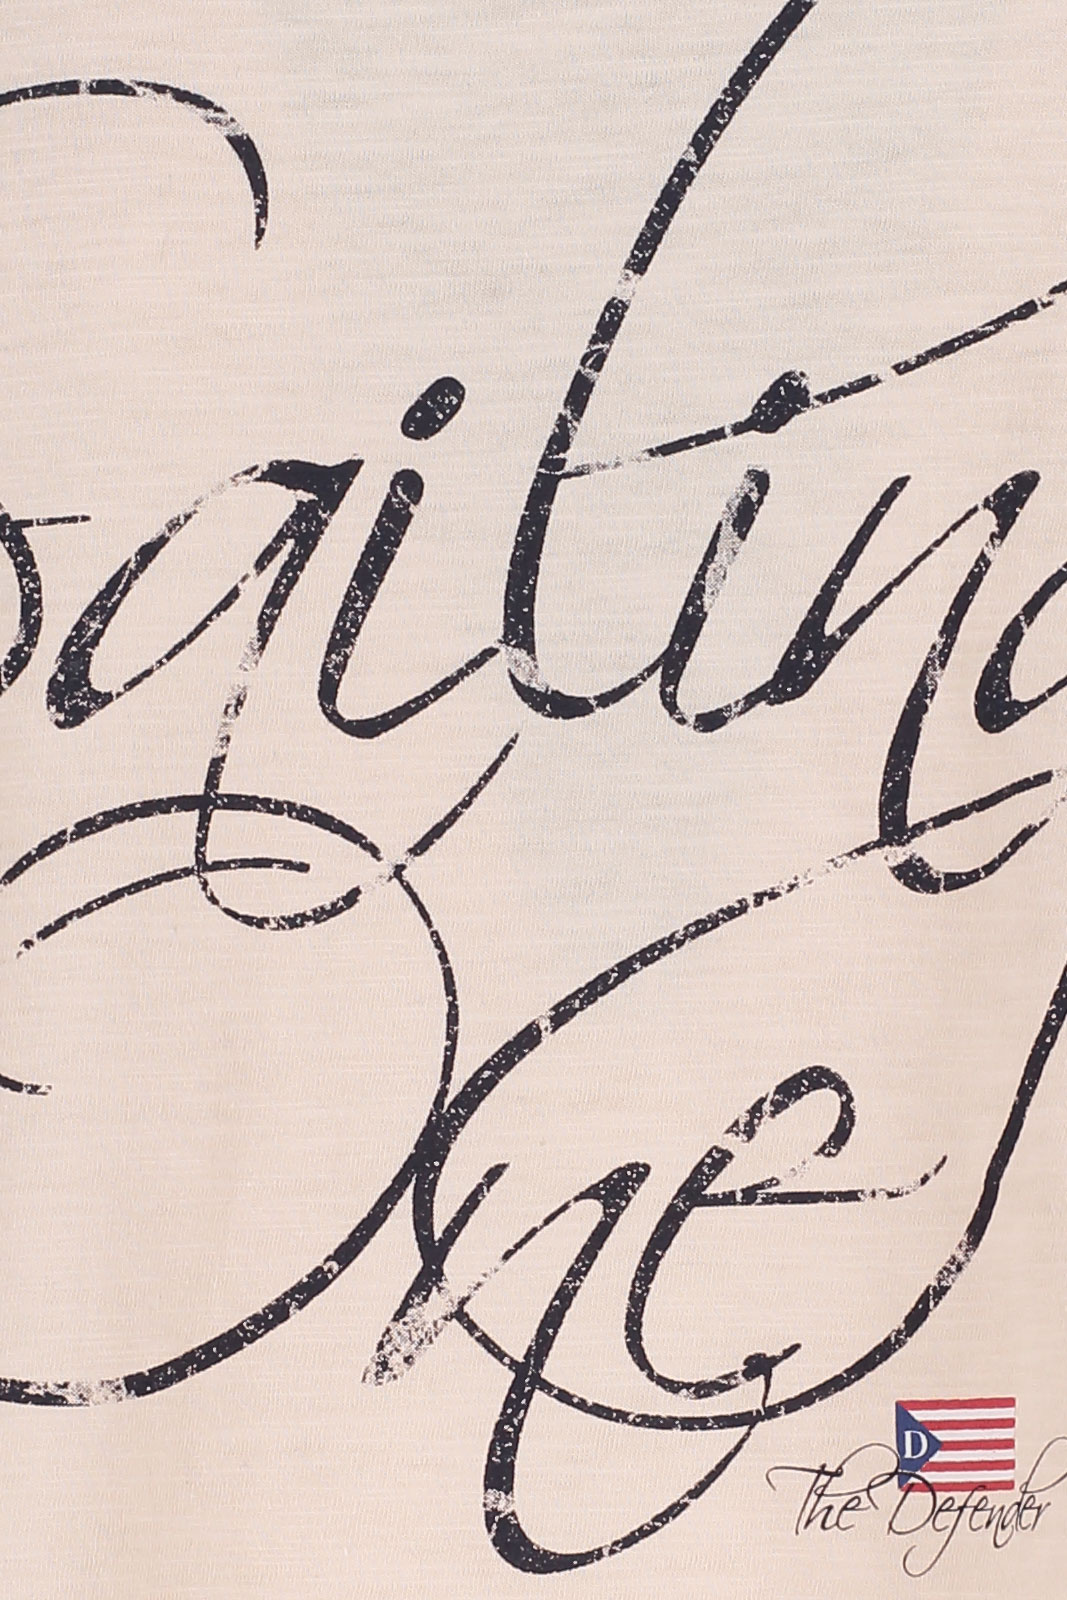 aiting
One
D
The Defender